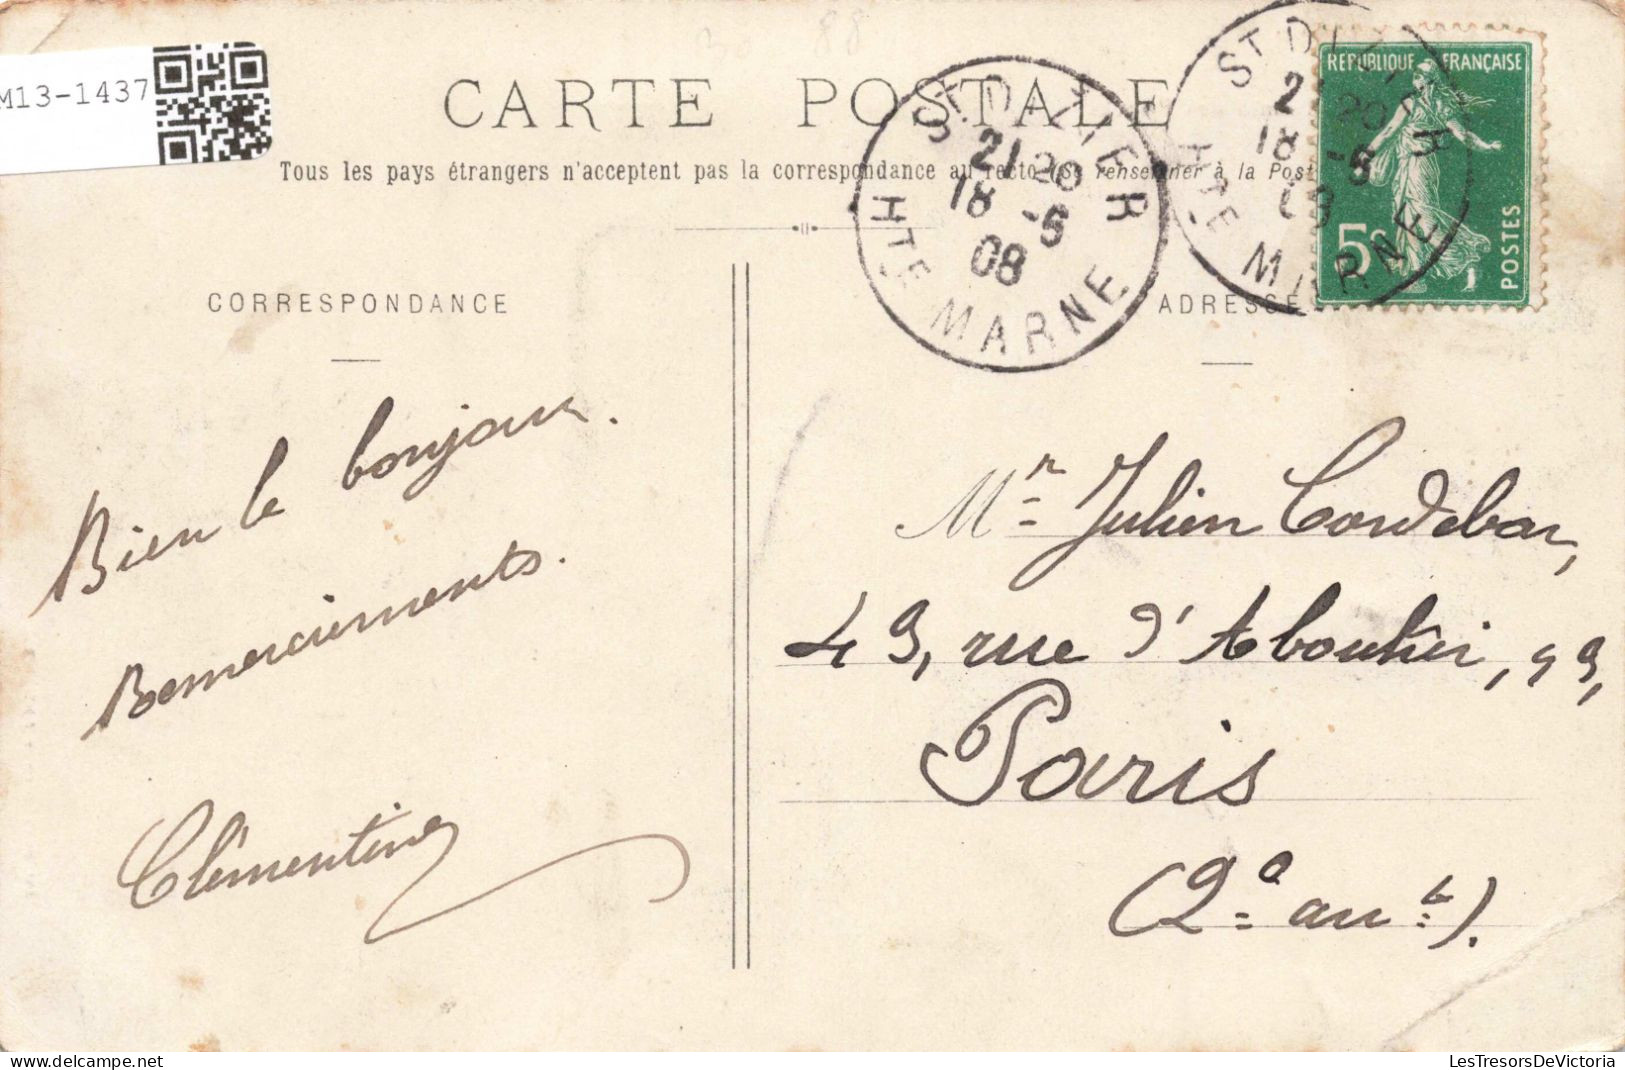 M13-1437
CARTE POSTALE
Tous les pays étrangers n'acceptent pas la correspondance au recto (Se renseigner à la Post
ST DIZIER
21 20
18 -5
08
HTE MARNE
ST DIZIER
2 20
18 -5
08
HTE MARNE
RÉPUBLIQUE FRANÇAISE
5c
POSTES
CORRESPONDANCE
ADRESSE
Bien le bonjour.
Remerciements.
Clémentine
Mr Julien Cordebar,
43, rue d'Aboukir, 43,
Paris
(2e arrt).
LesTresorsDeVictoria